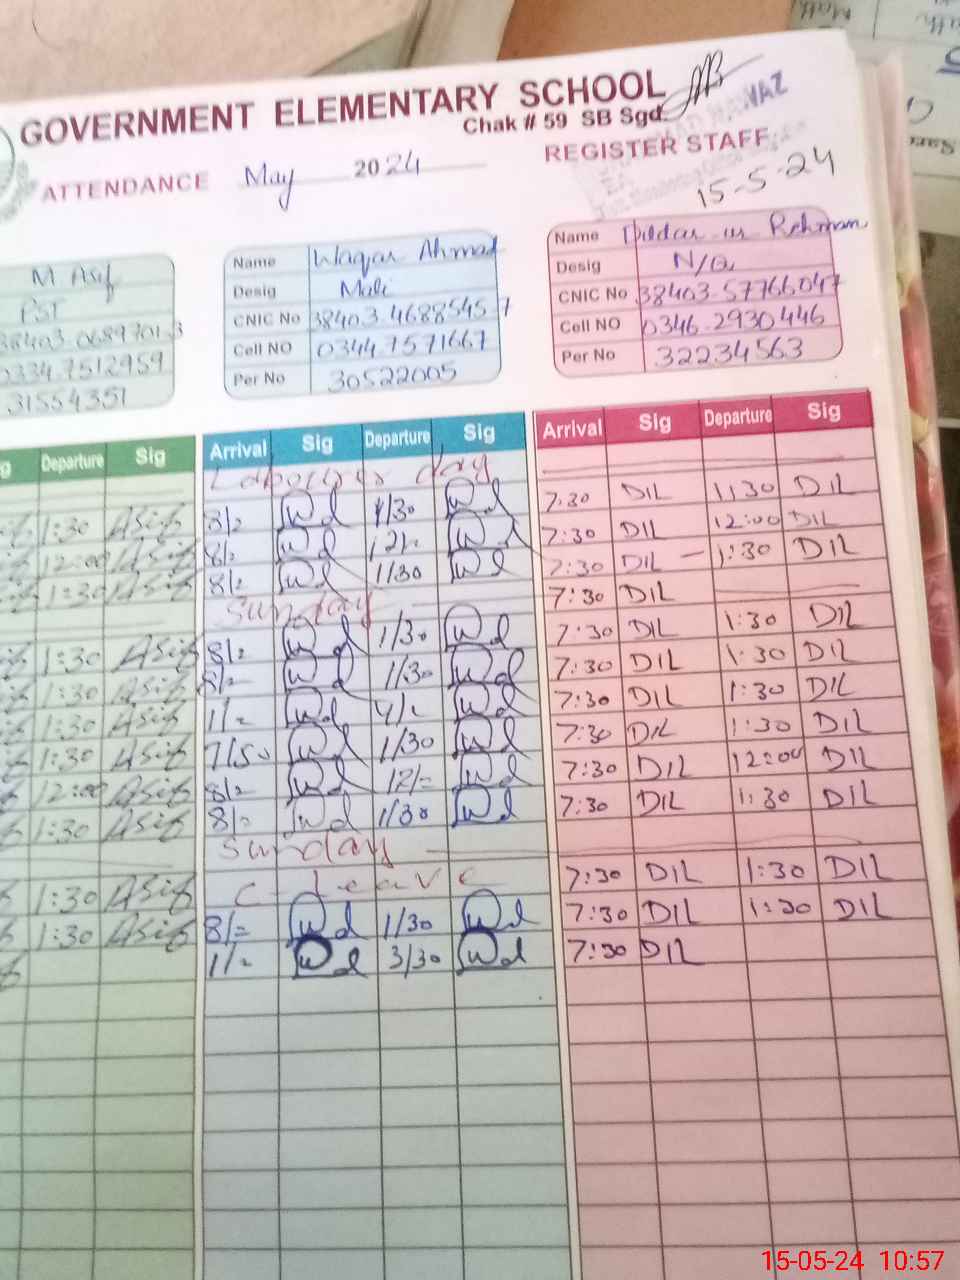 GOVERNMENT ELEMENTARY SCHOOL
Chak # 59 SB Sgd.
ATTENDANCE May 2024 REGISTER STAFF
15-5-24
M Asif
PST
0334.7512959
31554351
Name Waqar Ahmad
Desig Mali
CNIC No 38403.4688545.7
Cell NO 0344.7571667
Per No 30522005
Name Dildar ur Rehman
Desig N/Q
CNIC No 38403.57766047
Cell NO 0346.2930446
Per No 32234563
Departure Sig Arrival Sig Departure Sig Arrival Sig Departure Sig
Labour day
1:30 Asif 8/= Wd 1/30 Wd 7:30 DIL 1:30 DIL
12:00 Asif 8/= Wd 12/= Wd 7:30 DIL 12:00 DIL
1:30 Asif 8/= Wd 1/30 Wd 7:30 DIL - 1:30 DIL
Sunday 7:30 DIL
1:30 Asif 8/= Wd 1/30 Wd 7:30 DIL 1:30 DIL
1:30 Asif 8/= Wd 1/30 Wd 7:30 DIL 1:30 DIL
1:30 Asif Wd Wd 7:30 DIL 1:30 DIL
1:30 Asif 7/50 Wd 1/30 Wd 7:30 DIL 1:30 DIL
12:00 Asif 8/= Wd 12/= Wd 7:30 DIL 12:00 DIL
1:30 Asif 8/= Wd 1/30 Wd 7:30 DIL 1:30 DIL
Sunday
1:30 Asif C-Leave 7:30 DIL 1:30 DIL
1:30 Asif 8/= Wd 1/30 Wd 7:30 DIL 1:30 DIL
Wd 3/30 Wd 7:30 DIL
15-05-24 10:57